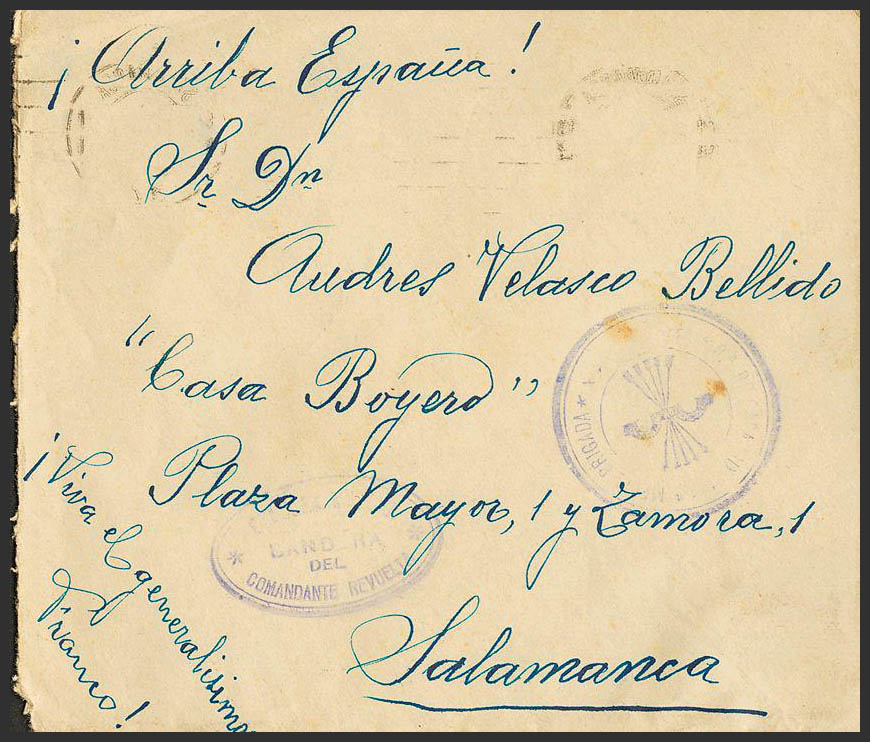 ¡Arriba España!
Sr Dn
Andres Velasco Bellido
"Casa Boyero"
Plaza Mayor, 1 y Zamora, 1
Salamanca
¡Viva el generalísimo
Franco!
BRIGADA
BANDERA
DEL
COMANDANTE REVUELTA